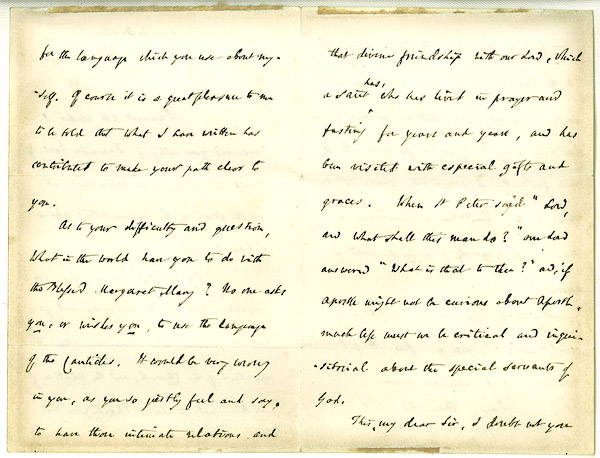 for the language which you use about my-
-self. Of course it is a great pleasure to me
to be told that what I have written has
contributed to make your path clear to
you.
As to your difficulty and question,
What in the world have you to do with
the Blessed Margaret Mary? No one asks
you, or wishes you, to use the language
of the Canticles. It would be very wrong
in you, as you so justly feel and say,
to have those intimate relations and
that divine friendship with our Lord, which
a saint has, who has lived in prayer and
fasting for years and years, and has
been visited with especial gifts and
graces. When St Peter said "Lord,
and what shall this man do?" our Lord
answered "What is that to thee?" and, if
Apostle might not be curious about Apostle,
much less must we be critical and inqui-
-sitorial about the special servants of
God.
This, my dear Sir, I doubt not you